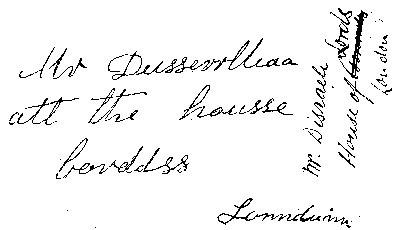 Mr Dusseorlliaa
att the housse
bovddss
Lonnduinn
Mr Disraeli
House of Lords
London